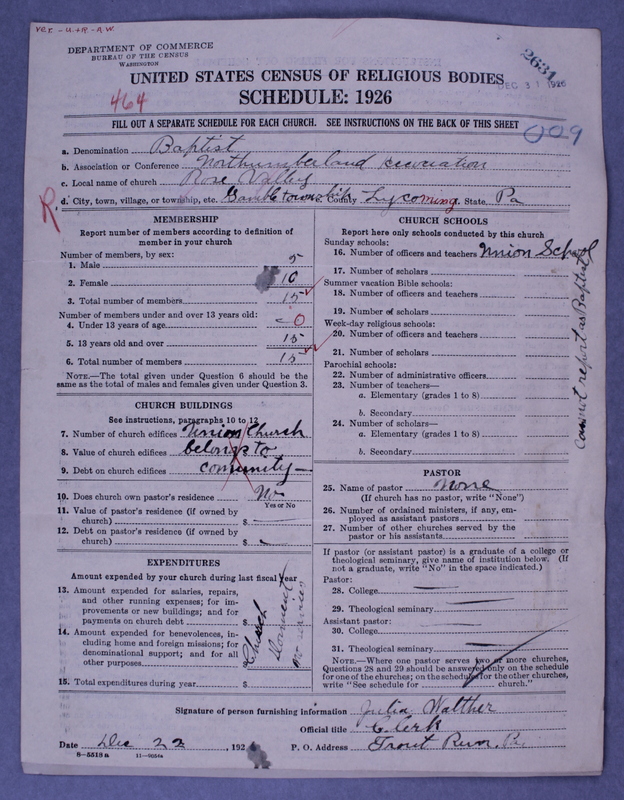 VET. - U. + R. - R.W.
DEPARTMENT OF COMMERCE
BUREAU OF THE CENSUS
WASHINGTON
2631
DEC 31 1926
UNITED STATES CENSUS OF RELIGIOUS BODIES
464
SCHEDULE: 1926
FILL OUT A SEPARATE SCHEDULE FOR EACH CHURCH. SEE INSTRUCTIONS ON THE BACK OF THIS SHEET
009
a. Denomination Baptist
b. Association or Conference Northumberland Association
c. Local name of church Rose Valley
R
d. City, town, village, or township, etc. Gamble township County Lycoming State Pa
MEMBERSHIP
Report number of members according to definition of member in your church
Number of members, by sex:
1. Male 5
2. Female 10
3. Total number of members 15
Number of members under and over 13 years old:
4. Under 13 years of age 0
5. 13 years old and over 15
6. Total number of members 15
NOTE.—The total given under Question 6 should be the same as the total of males and females given under Question 3.
CHURCH BUILDINGS
See instructions, paragraphs 10 to 12
7. Number of church edifices Union Church
8. Value of church edifices belongs to
9. Debt on church edifices comunity
10. Does church own pastor's residence No
Yes or No
11. Value of pastor's residence (if owned by church) $
12. Debt on pastor's residence (if owned by church) $
EXPENDITURES
Amount expended by your church during last fiscal year
13. Amount expended for salaries, repairs, and other running expenses; for improvements or new buildings; and for payments on church debt $
14. Amount expended for benevolences, including home and foreign missions; for denominational support; and for all other purposes
Church
Dormant
no services
15. Total expenditures during year $
CHURCH SCHOOLS
Report here only schools conducted by this church
Sunday schools:
16. Number of officers and teachers Union School
17. Number of scholars
Summer vacation Bible schools:
18. Number of officers and teachers
19. Number of scholars
Week-day religious schools:
20. Number of officers and teachers
21. Number of scholars
Parochial schools:
22. Number of administrative officers
23. Number of teachers—
a. Elementary (grades 1 to 8)
b. Secondary
24. Number of scholars—
a. Elementary (grades 1 to 8)
b. Secondary
cannot report as Baptist
PASTOR
25. Name of pastor None
(If church has no pastor, write "None")
26. Number of ordained ministers, if any, employed as assistant pastors
27. Number of other churches served by the pastor or his assistants
If pastor (or assistant pastor) is a graduate of a college or theological seminary, give name of institution below. (If not a graduate, write "No" in the space indicated.)
Pastor:
28. College
29. Theological seminary
Assistant pastor:
30. College
31. Theological seminary
NOTE.—Where one pastor serves two or more churches, Questions 28 and 29 should be answered only on the schedule for one of the churches; on the schedule for the other churches, write "See schedule for church."
Signature of person furnishing information Julia Walther
Official title Clerk
Date Dec 22, 192 P. O. Address Trout Run, Pa.
8—5513a 11—9054a